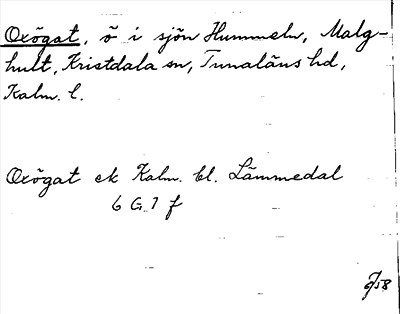 Oxögat, ö i sjön Hummeln, Malg-
hult, Kristdala sn, Tunaläns hd,
Kalm. l.
Oxögat ek Kalm. bl. Lämmedal
6 G 7 f